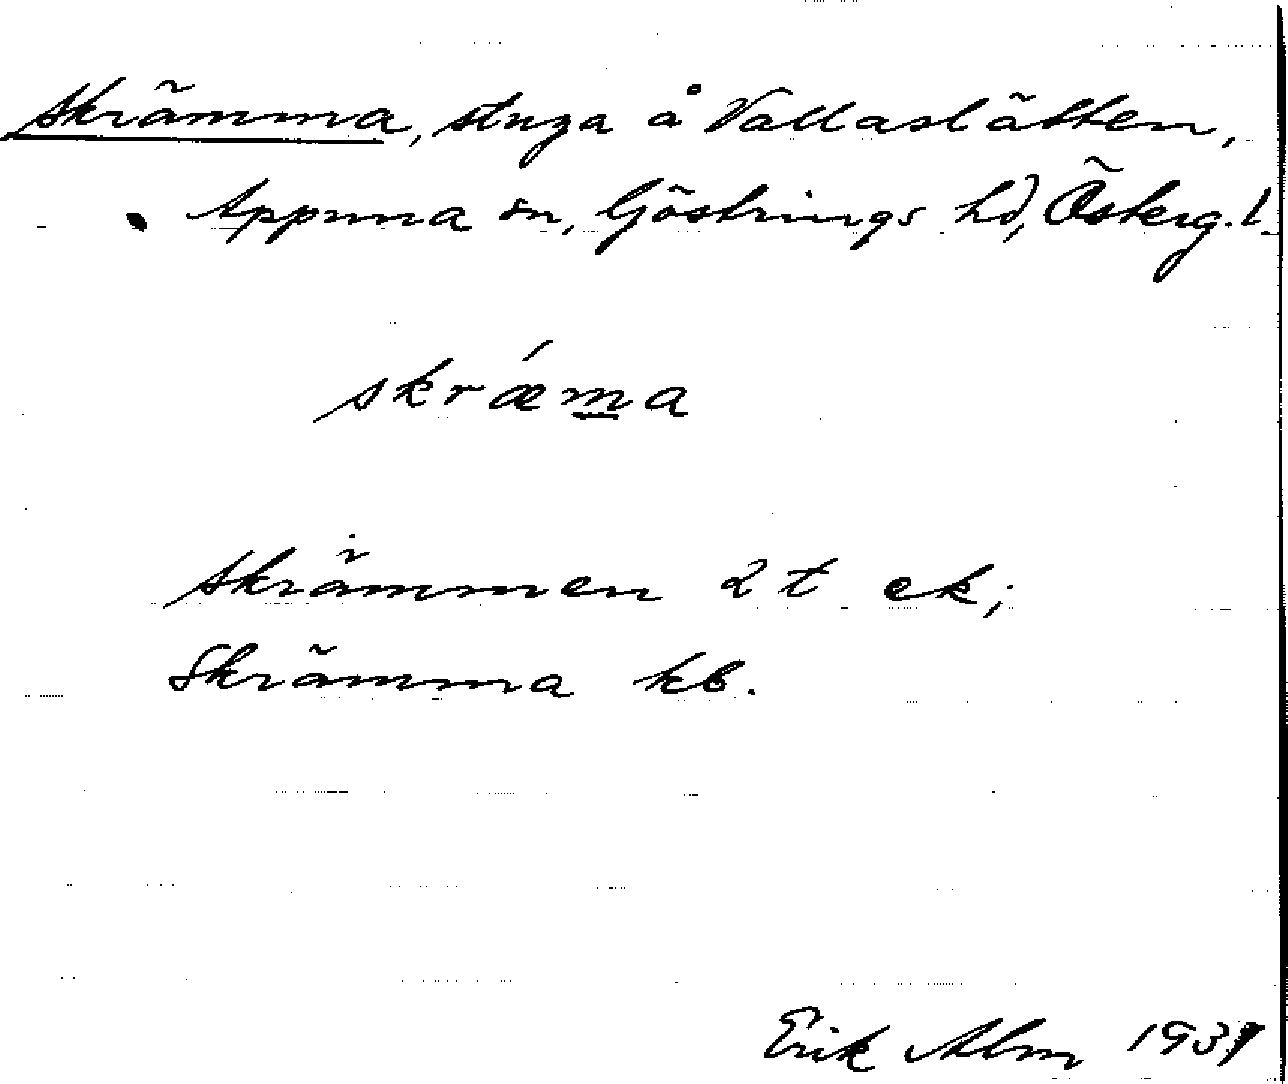 Skrämma, stuga å Vallaslätten,
Appuna sn, Göstrings hd, Österg. l.
skrǽma
Skrämmen 2 t ek;
Skrämma kb.
Erik Alm